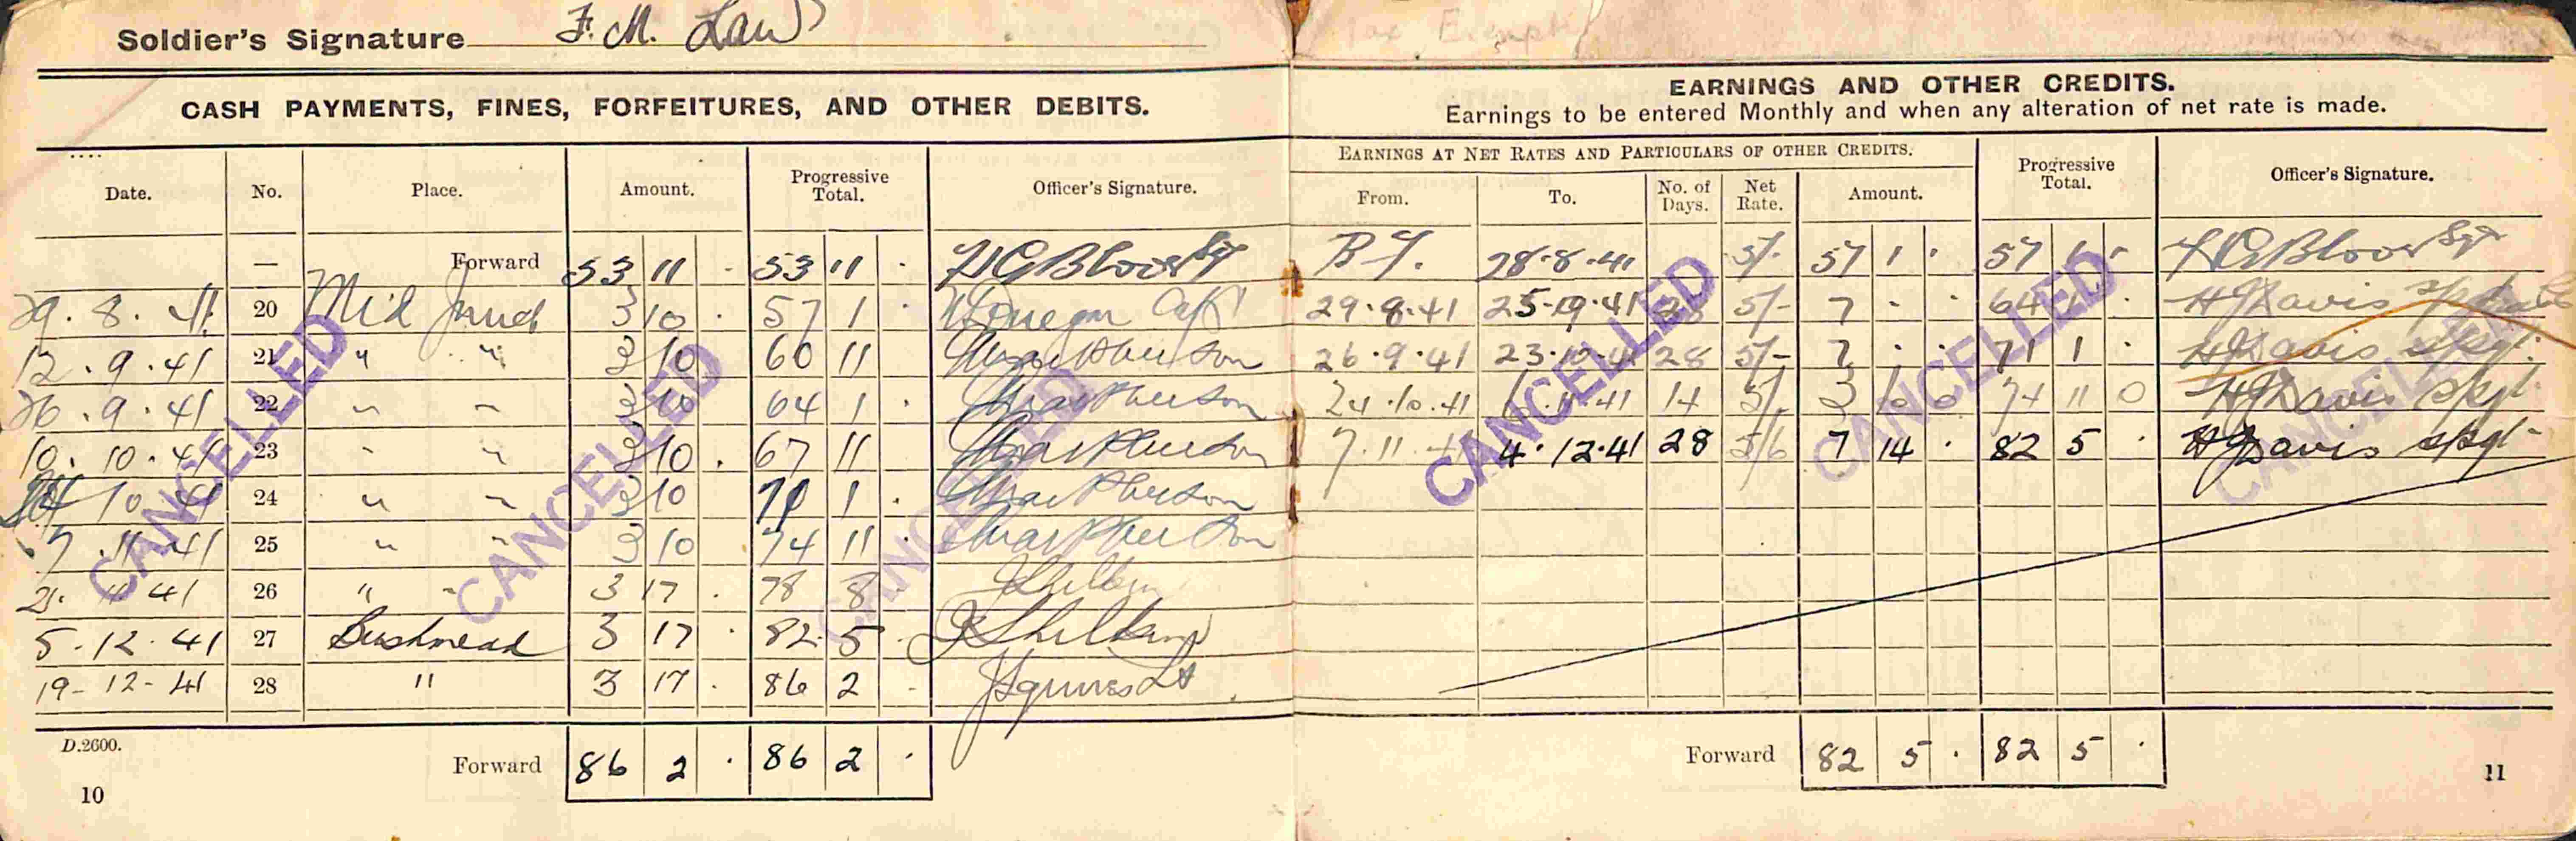 Soldier's Signature F. M. Law
CASH PAYMENTS, FINES, FORFEITURES, AND OTHER DEBITS.
Date. No. Place. Amount. Progressive Total. Officer's Signature.
— Forward 53 11 · 53 11 ·
29. 8. 41 20 3 10 · 57 1 ·
12. 9. 41 21 " " 3 10 60 11
26. 9. 41 22 " " 3 10 64 1 ·
10. 10. 41 23 " " 3 10 · 67 11
10 41 24 " " 3 10 71 1 ·
7. 11. 41 25 " " 3 10 74 11 ·
21. 11 41 26 " " 3 17 · 78 8 ·
5 - 12 · 41 27 Bushmead 3 17 · 82 5 ·
19 - 12 - 41 28 " 3 17 · 86 2 -
Forward 86 2 · 86 2 ·
D.2600.
10
CANCELLED
CANCELLED
CANCELLED
EARNINGS AND OTHER CREDITS.
Earnings to be entered Monthly and when any alteration of net rate is made.
EARNINGS AT NET RATES AND PARTICULARS OF OTHER CREDITS.
From. To. No. of Days. Net Rate. Amount. Progressive Total. Officer's Signature.
B F. 28·8·41 5/- 57 1 · 57 1 ·
29·8·41 25·9·41 28 5/- 7 · · 64 1 · H J Davis
26·9·41 23·10·41 28 5/- 7 · · 71 1 · H J Davis
24·10·41 6·11·41 14 5/- 3 10 0 74 11 0 H J Davis
7·11·41 4·12·41 28 5/6 7 14 · 82 5 · H J Davis
Forward 82 5 · 82 5 ·
11
CANCELLED
CANCELLED
CANCELLED